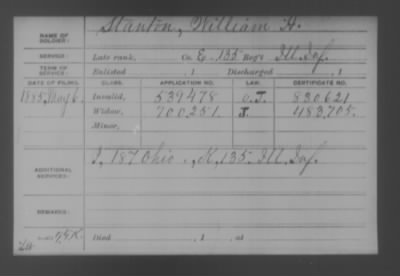 NAME OF SOLDIER: Stanton, William H.
SERVICE: Late rank, Co. E. 135 Reg't Ill. Inf.
TERM OF SERVICE: Enlisted , 1 Discharged , 1
DATE OF FILING. CLASS. APPLICATION NO. LAW. CERTIFICATE NO.
1885, May 6. Invalid, 539478 J. 830621
Widow, 700,251. J. 483,705.
Minor,
ADDITIONAL SERVICES: I, 187 Ohio., K, 135 Ill. Inf.
REMARKS:
Died , 1 , at